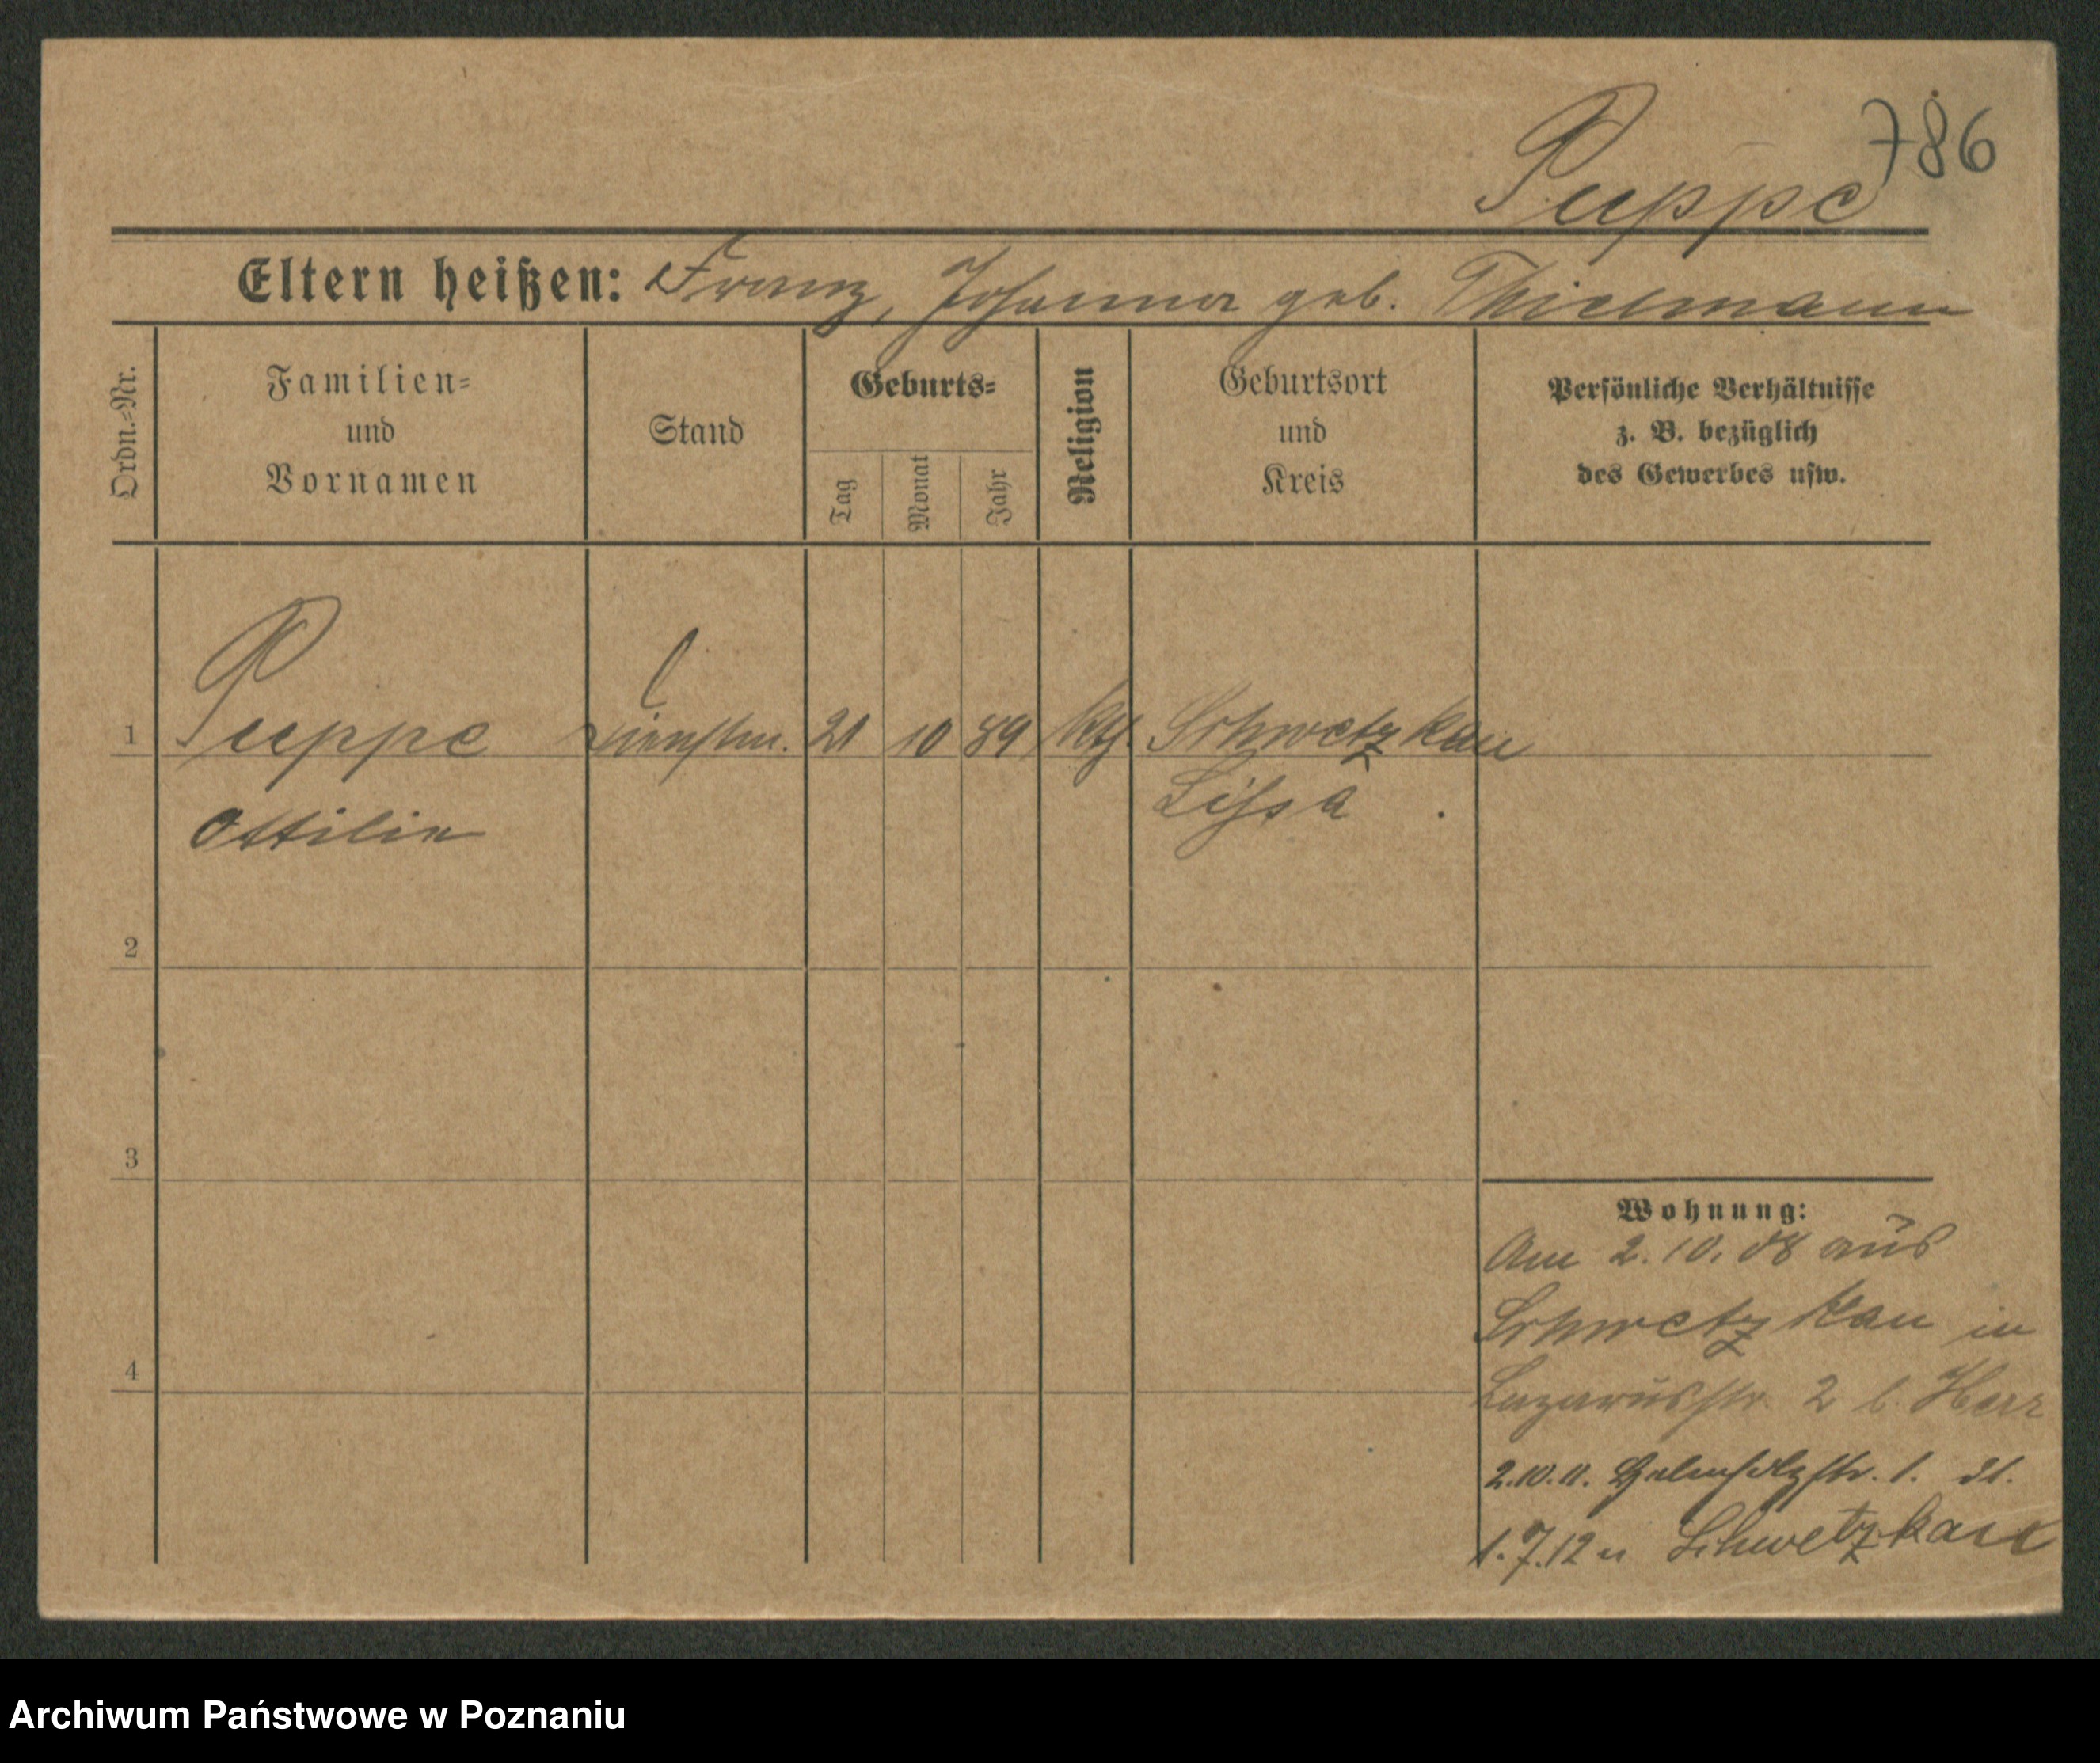 786
Puppe
Eltern heißen: Franz, Johanna geb. Thielmann
Ordn.-Nr.
Familien-
und
Vornamen
Stand
Geburts-
Tag
Monat
Jahr
Religion
Geburtsort
und
Kreis
Persönliche Verhältnisse
z. B. bezüglich
des Gewerbes usw.
1 Puppe l Dienstm. 21 10 89 kth. Schwetzkau
Ottilie Lissa
2
3
4
Wohnung:
Am 2.10.08 aus
Schwetzkau in
Lazarusstr. 2 b. Herr
2.10.11. 1.
1.7.12 n Schwetzkau
Archiwum Państwowe w Poznaniu